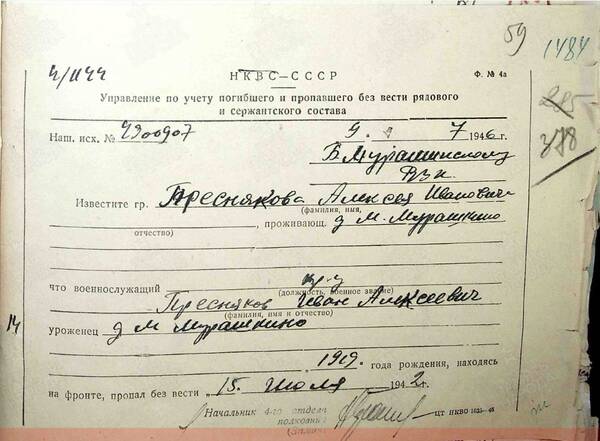 59 1484
4/1144
НКВС—СССР Ф. № 4а
285
378
Управление по учету погибшего и пропавшего без вести рядового
и сержантского состава
Наш. исх. № 4900907 9. 7 1946г.
Б Мурашкинскому
Рвк.
Известите гр. Преснякова Алексея Ивановича
(фамилия, имя,
, проживающ. д М. Мурашкино
отчество)
что военнослужащий кр-ц
(должность, военное звание)
Пресняков Иван Алексеевич
(фамилия, имя и отчество)
14
уроженец д М Мурашкино
1919. года рождения, находясь
на фронте, пропал без вести 15. июля 1942г.
Начальник 4-го отдела
полковник
ЦТ НКВО